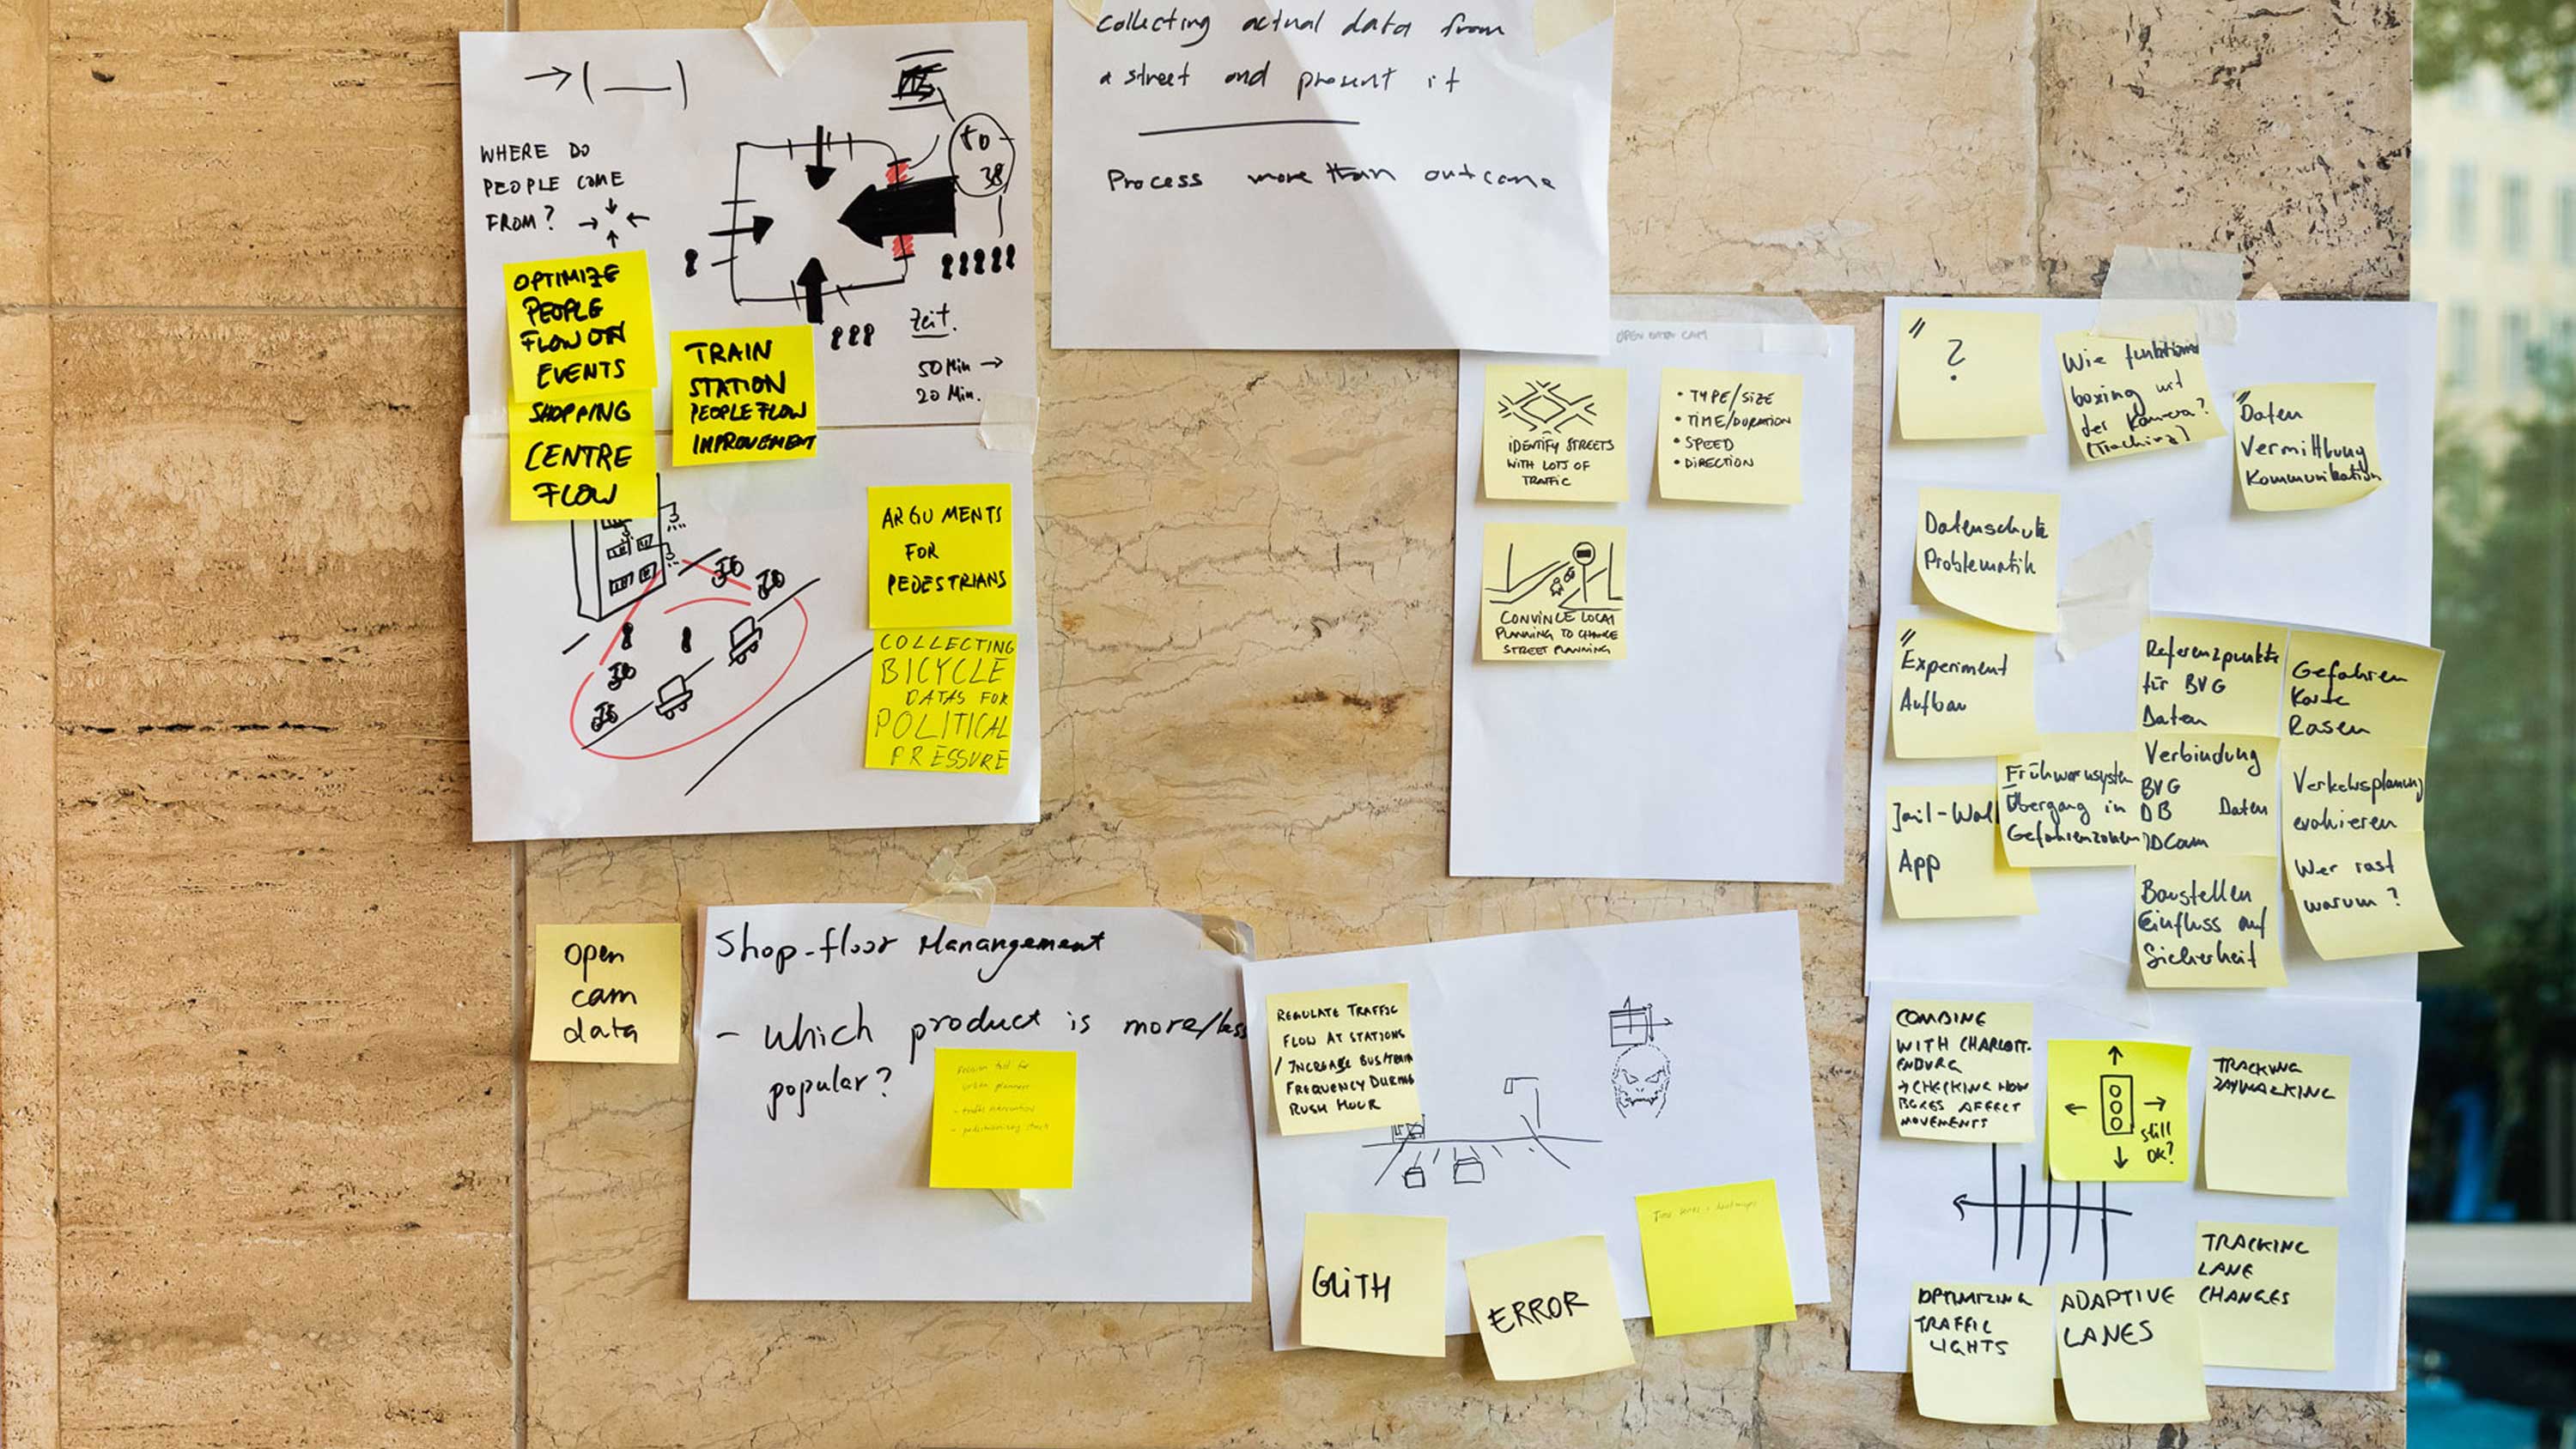 →(___)
WHERE DO
PEOPLE COME
FROM?
50
38
Zeit.
50 Min →
20 Min.
OPTIMIZE
PEOPLE
FLOW ON
EVENTS
SHOPPING
CENTRE
FLOW
TRAIN
STATION
PEOPLE FLOW
IMPROVEMENT
ARGUMENTS
FOR
PEDESTRIANS
COLLECTING
BICYCLE
DATAS FOR
POLITICAL
PRESSURE
collecting actual data from
a street and present it
Process more than outcome
OPEN DATA CAM
IDENTIFY STREETS
WITH LOTS OF
TRAFFIC
• TYPE/SIZE
• TIME/DURATION
• SPEED
• DIRECTION
CONVINCE LOCAL
PLANNING TO CHANGE
STREET PLANNING
?
Wie funktioniert
boxing mit
der Kamera?
(Tracking)
Daten
Vermittlung
Kommunikation
Datenschutz
Problematik
Experiment
Aufbau
Referenzpunkte
für BVG
Daten
Gefahren
Karte
Rasen
Jail-Wal
App
Frühwarnsystem
Übergang in
Gefahrenzonen
Verbindung
BVG
DB Daten
ODCam
Verkehrsplanung
evaluieren
Wer rast
warum?
Baustellen
Einfluss auf
Sicherheit
open
cam
data
Shop-floor Manangement
- which product is more/less
popular?
Decision tool for
urban planners
- traffic intervention
REGULATE TRAFFIC
FLOW AT STATIONS
/ INCREASE BUS/TRAIN
FREQUENCY DURING
RUSH HOUR
GLITH
ERROR
COMBINE
WITH CHARLOTT-
ENBURG
→ CHECKING HOW
BOXES AFFECT
MOVEMENTS
still
OK?
TRACKING
JAYWALKING
TRACKING
LANE
CHANGES
OPTIMIZING
TRAFFIC
LIGHTS
ADAPTIVE
LANES